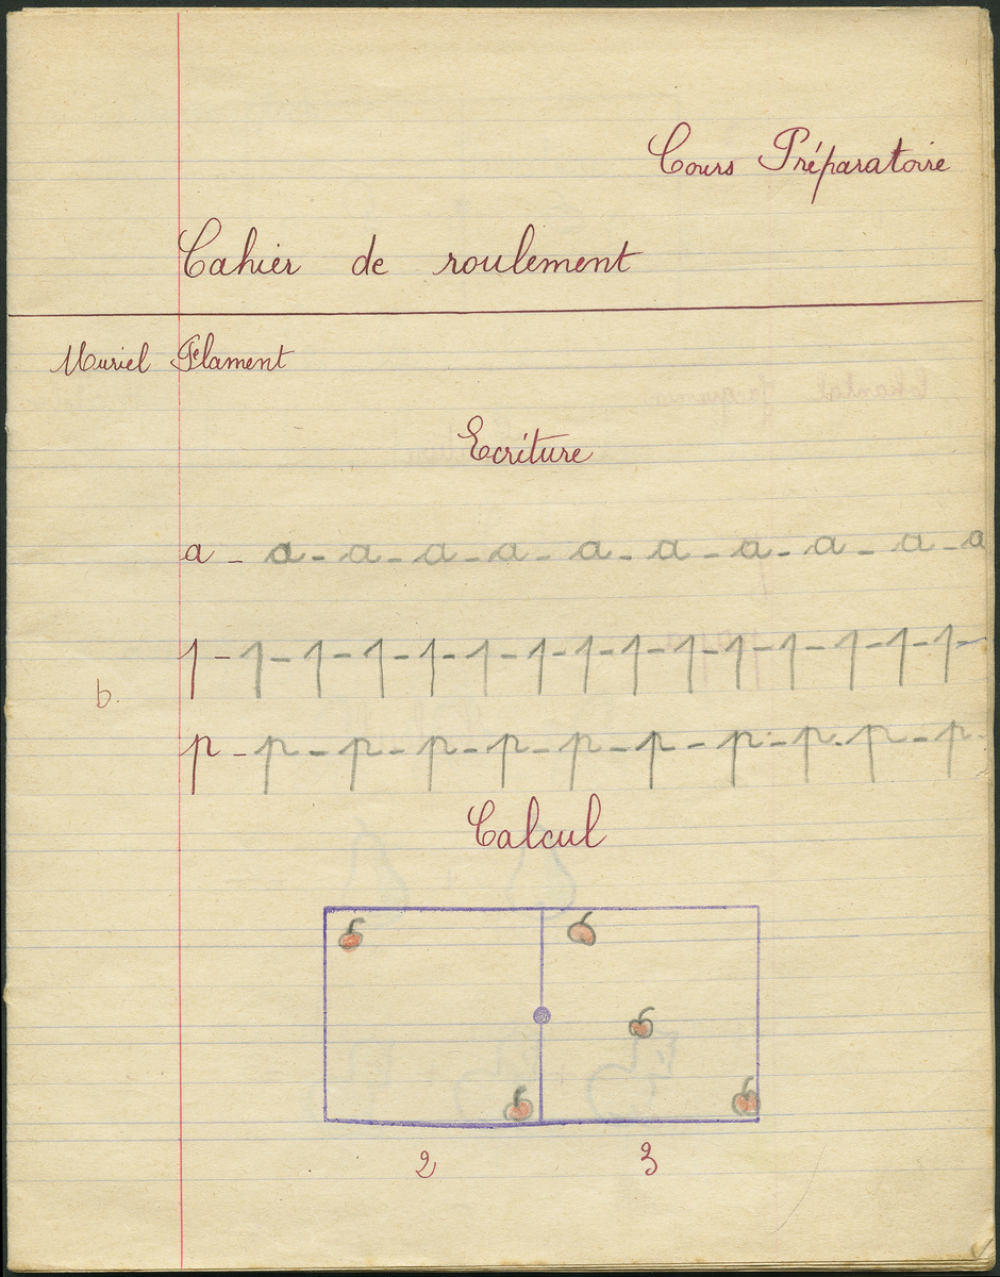 Cours Préparatoire
Cahier de roulement
Muriel Flament
Ecriture
a - a - a - a - a - a - a - a - a - a - a
1 - 1 - 1 - 1 - 1 - 1 - 1 - 1 - 1 - 1 - 1 - 1 - 1 - 1 - 1 -
b.
p - p - p - p - p - p - p - p - p. p - p -
Calcul
2 3